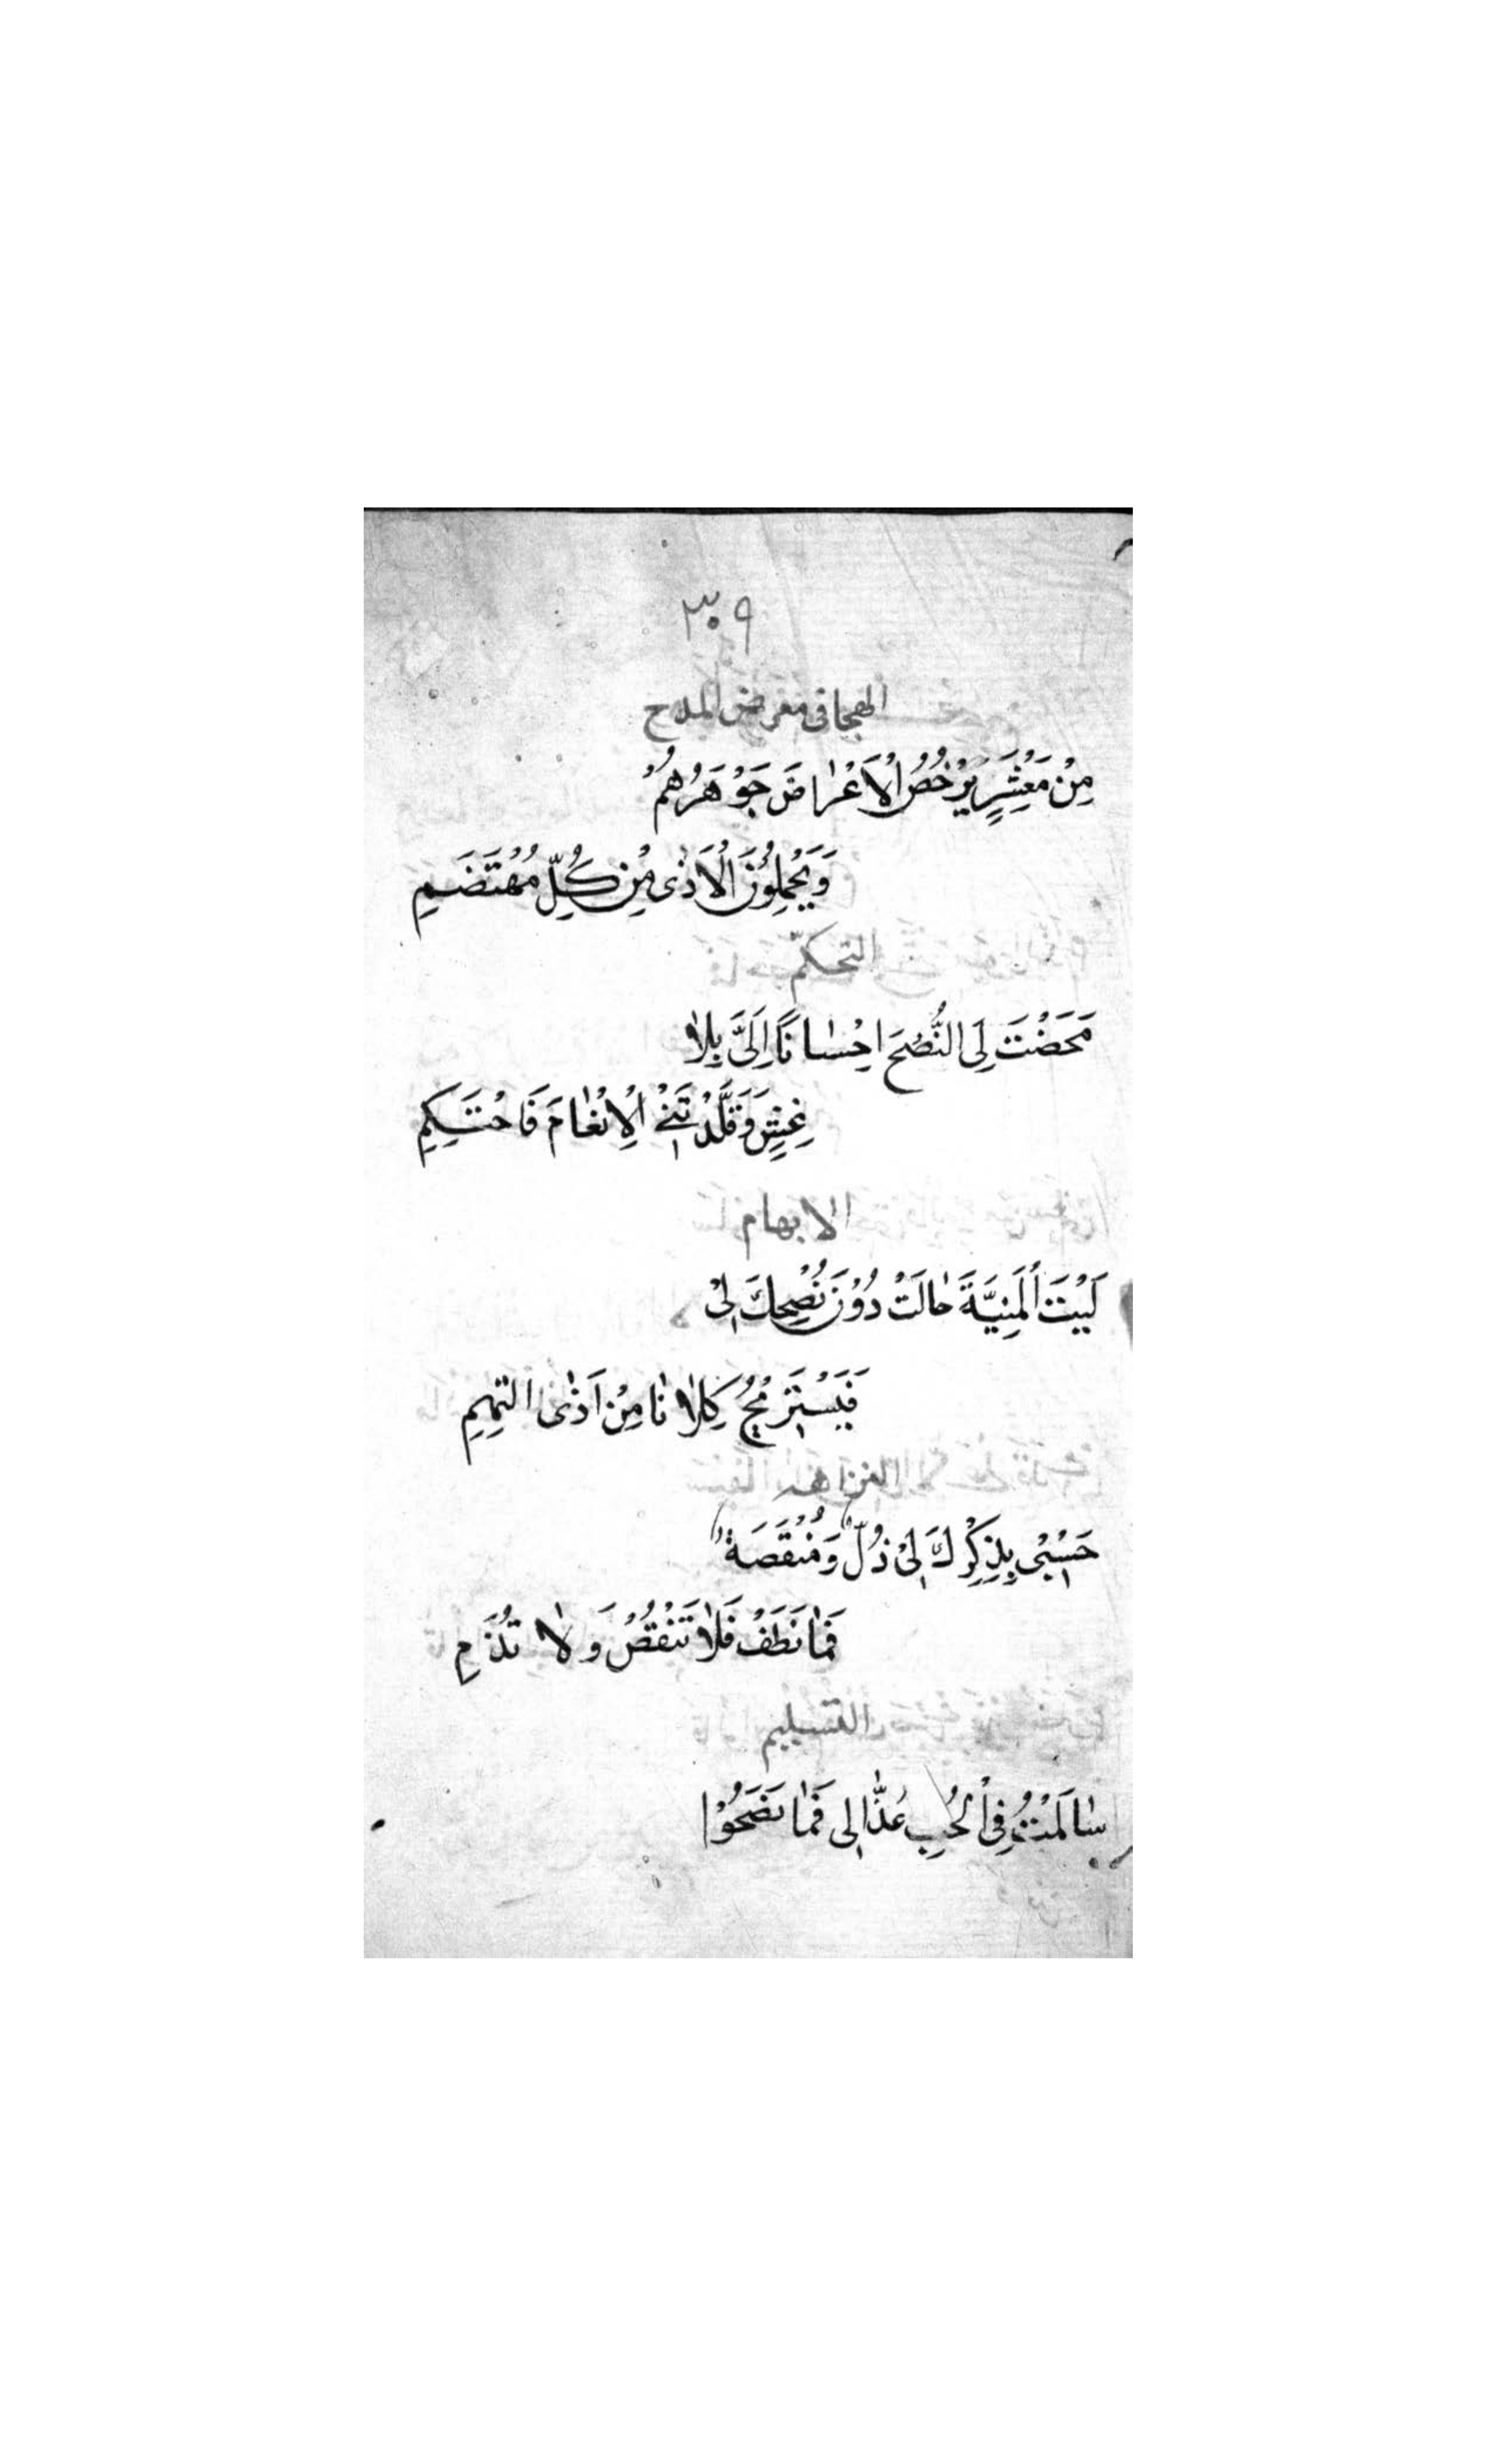 ٣٠٩
الهجا فى معرض المدح
مِنْ مَعْشَرٍ يُرْخِصُ الْاَعْرٰاضَ جَوْهَرُهُمْ
وَيَحْمِلُوْنَ الْاَذٰى مِنْ كُلِّ مُهْتَضَمِ
التحكّم
مَحَضْتَ لِىَ النُّصْحَ اِحْسٰانًا اِلَىَّ بِلاٰ
غِشٍّ وَقَلَّدْتَنِىْ الْاِنْعٰامَ فَاحْتَكِمِ
الابهام
لَيْتَ الْمَنِيَّةَ حٰالَتْ دُوْنَ نُصْحِكَ لِىْ
فَيَسْتَرِيْحُ كِلاٰنٰا مِنْ اَذٰى التهمِ
النزاهه
حَسْبِىْ بِذِكْرِكَ لِىْ ذُلّ وَمُنْقَصَة
فَمٰا نَطَفْ فَلاٰ تَنْقُصْ وَلاٰ تُذَمِ
التسليم
سٰالَمْتُ فِىْ الْحُبِ عُذّٰالِى فَمٰا نَصَحُوْا